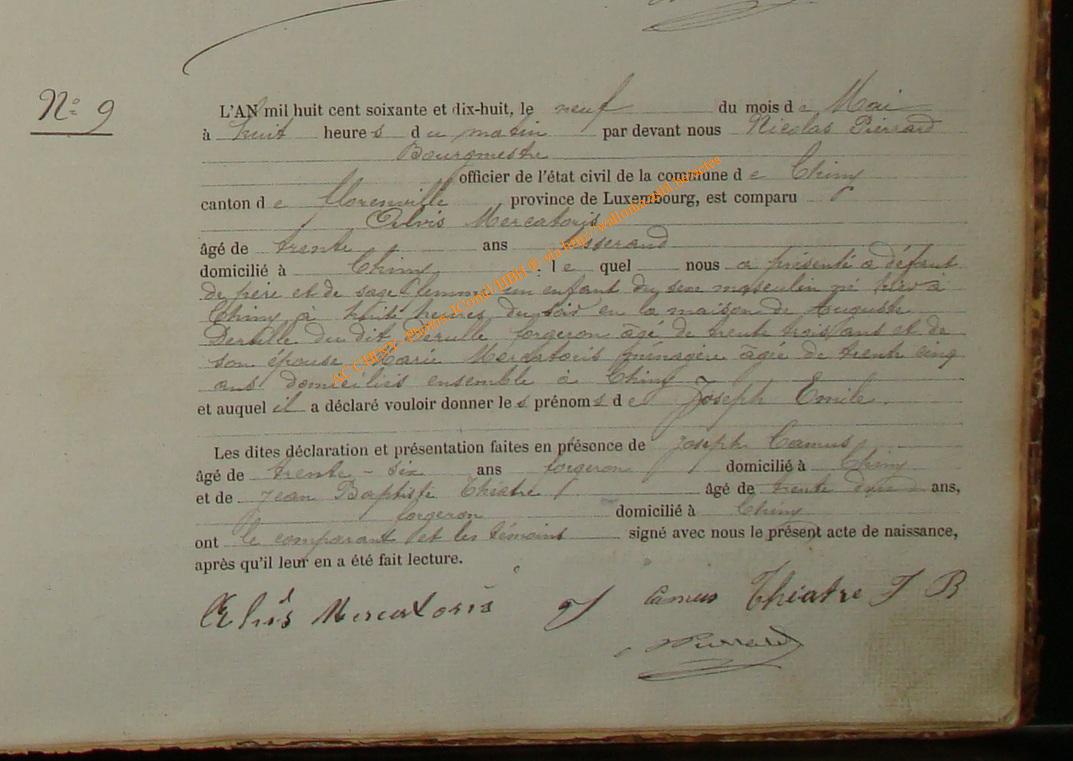 Nº 9
L'AN mil huit cent soixante et dix-huit, le neuf du mois de Mai
à huit heures du matin par devant nous Nicolas Pierrard
Bourgmestre
officier de l'état civil de la commune de Chiny
canton de florenville province de Luxembourg, est comparu
Mercatoris
âgé de trente ans tisserand
domicilié à Chiny, lequel nous a présenté à défaut
de père et de sage femme un enfant du sexe masculin né hier à
Chiny à huit heures du soir en la maison de Auguste
du dit forgeron âgé de trente trois ans et de
son épouse Marie Mercatoris ménagère âgée de trente cinq
ans domiciliés ensemble à Chiny
et auquel il a déclaré vouloir donner les prénoms de Joseph Emile.
Les dites déclaration et présentation faites en présence de Joseph Camus,
âgé de trente-six ans forgeron domicilié à Chiny
et de Jean Baptiste Théatre âgé de trente ans,
forgeron domicilié à Chiny
ont le comparant et les témoins signé avec nous le présent acte de naissance,
après qu'il leur en a été fait lecture.
Mercatoris J Camus Théatre J B
Pierrard